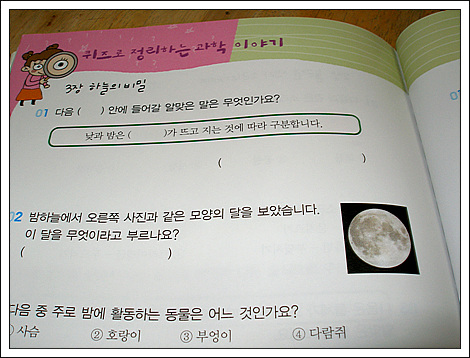 퀴즈로 정리하는 과학 이야기
3장 하늘의 비밀
01 다음 (      ) 안에 들어갈 알맞은 말은 무엇인가요?
낮과 밤은 (      )가 뜨고 지는 것에 따라 구분합니다.
(      )
02 밤하늘에서 오른쪽 사진과 같은 모양의 달을 보았습니다.
이 달을 무엇이라고 부르나요?
(      )
다음 중 주로 밤에 활동하는 동물은 어느 것인가요?
① 사슴 ② 호랑이 ③ 부엉이 ④ 다람쥐